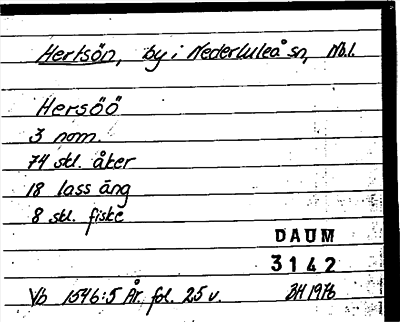 Hertsön, by i Nederluleå sn, Nb.l.
Hersöö
3 nom.
74 stl. åker
18 lass äng
8 stl. fiske
DAUM
3142
Vb 1546:5 År. fol. 25 v. BH 1976